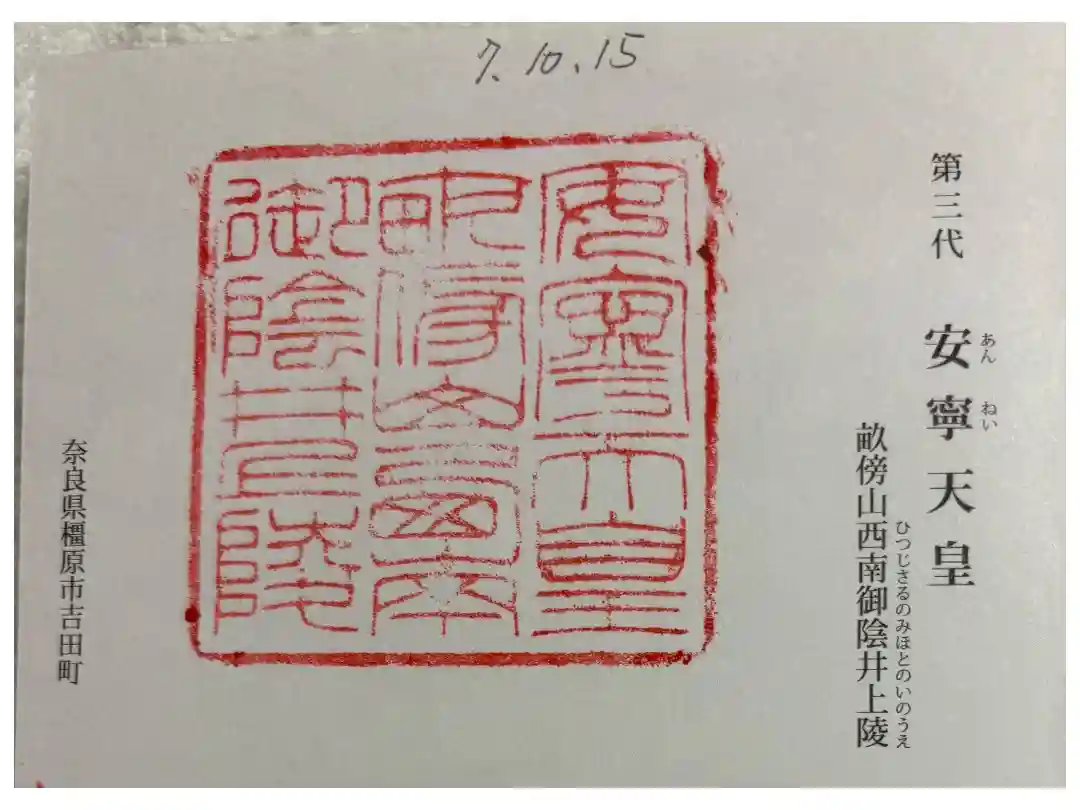 7.10.15
第三代 安寧天皇
あんねい
畝傍山西南御陰井上陵
ひつじさるのみほとのいのうえ
安寧天皇
畝傍山西南
御陰井上陵
奈良県橿原市吉田町